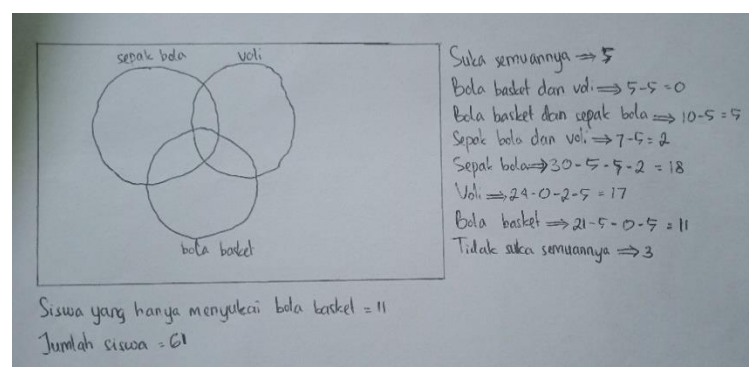 sepak bola
voli
bola basket
Suka semuannya ⇒ 5
Bola basket dan voli ⇒ 5-5=0
Bola basket dan sepak bola ⇒ 10-5=5
Sepak bola dan voli ⇒ 7-5=2
Sepak bola ⇒ 30-5-5-2 = 18
Voli ⇒ 24-0-2-5 = 17
Bola basket ⇒ 21-5-0-5 = 11
Tidak suka semuannya ⇒ 3
Siswa yang hanya menyukai bola basket = 11
Jumlah siswa = 61